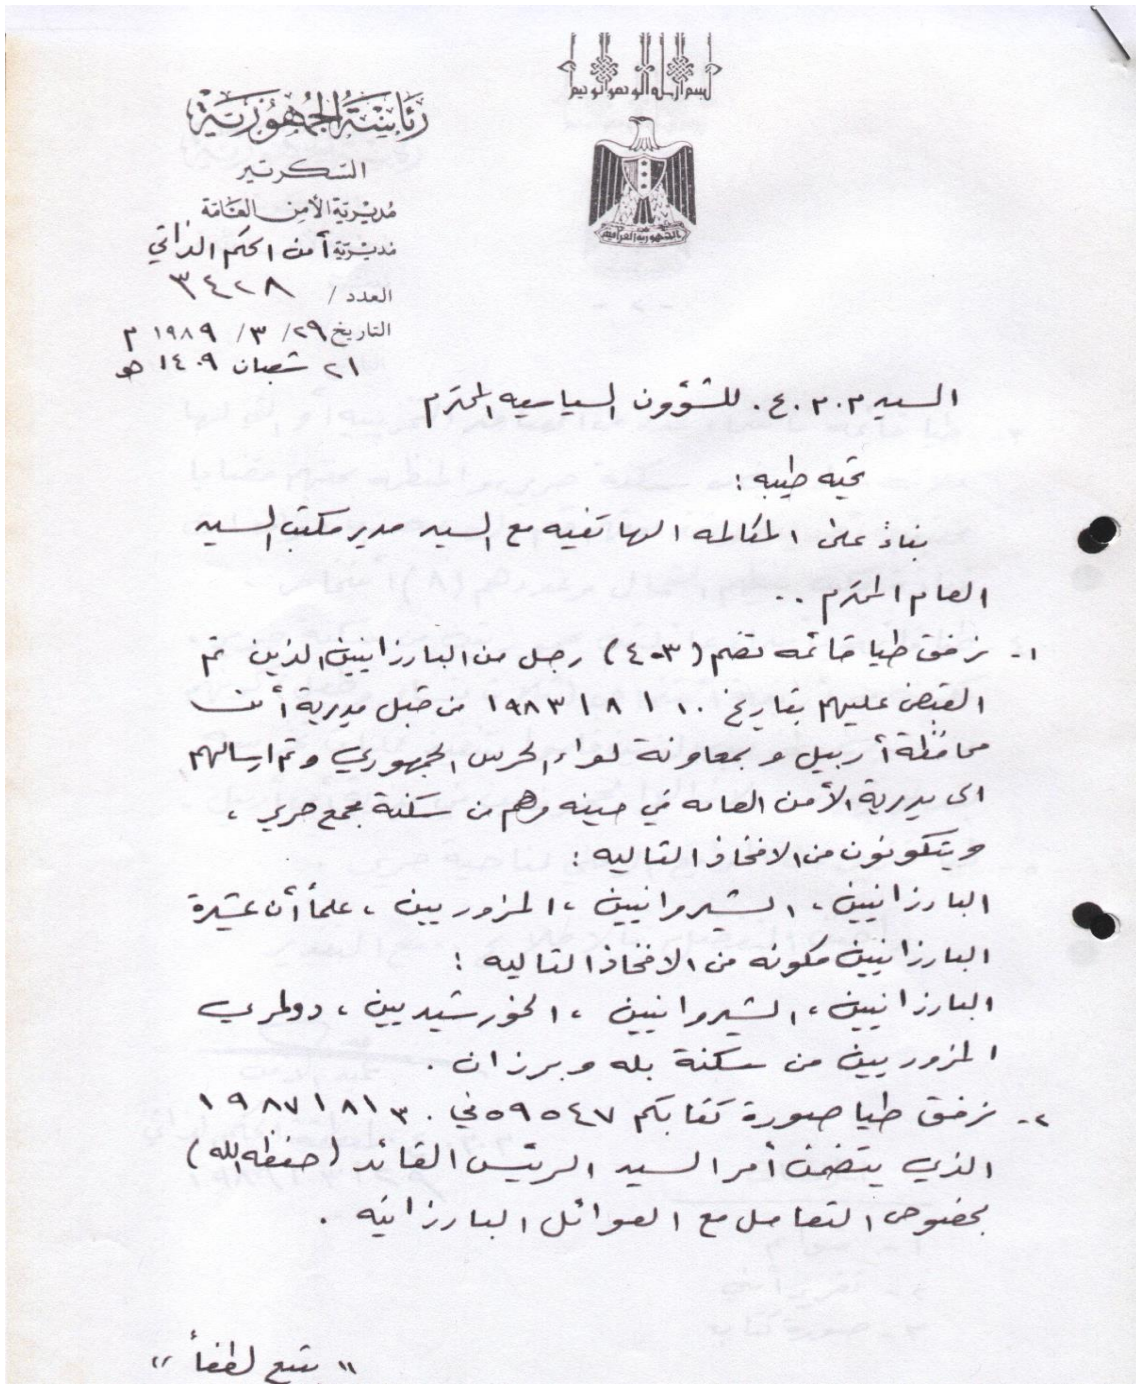 بسم الله الرحمن الرحيم
رئاسة الجمهورية
السكرتير
مديرية الأمن العامة
مديرية أمن الحكم الذاتي
العدد / ٣٤٢٨
التاريخ ٢٩/ ٣/ ١٩٨٩ م
٢١ شعبان ١٤٠٩ هـ
الجمهورية العراقية
السيد م.م.ع. للشؤون السياسيه المحترم
تحيه طيبه :
بناءً على المكالمه الهاتفيه مع السيد مدير مكتب السيد
العام المحترم ..
١- نرفق طيا قائمه تضم (٤٠٣) رجل من البارزانيين الذين تم
القبض عليهم بتاريخ ١٠ / ٨ / ١٩٨٣ من قبل مديرية أمن
محافظة أربيل و بمعاونة لواء الحرس الجمهوري و تم ارسالهم
الى مديرية الأمن العامه في حينه وهم من سكنة مجمع حرير ،
ويتكونون من الافخاذ التاليه :
البارزانيين ، الشيروانيين ، المزوريين ، علماً أن عشيرة
البارزانيين مكونه من الافخاذ التاليه :
البارزانيين ، الشيروانيين ، الخورشيديين ، دولمري
المزوريين من سكنة بله و برزان .
٢- نرفق طيا صورة كتابكم ٥٩٥٤٧ في ٣٠ / ٨ / ١٩٨٧
الذي يتضمن أمر السيد الرئيس القائد (حفظه الله)
بخصوص التعامل مع العوائل البارزانيه .
" يتبع لطفاً "